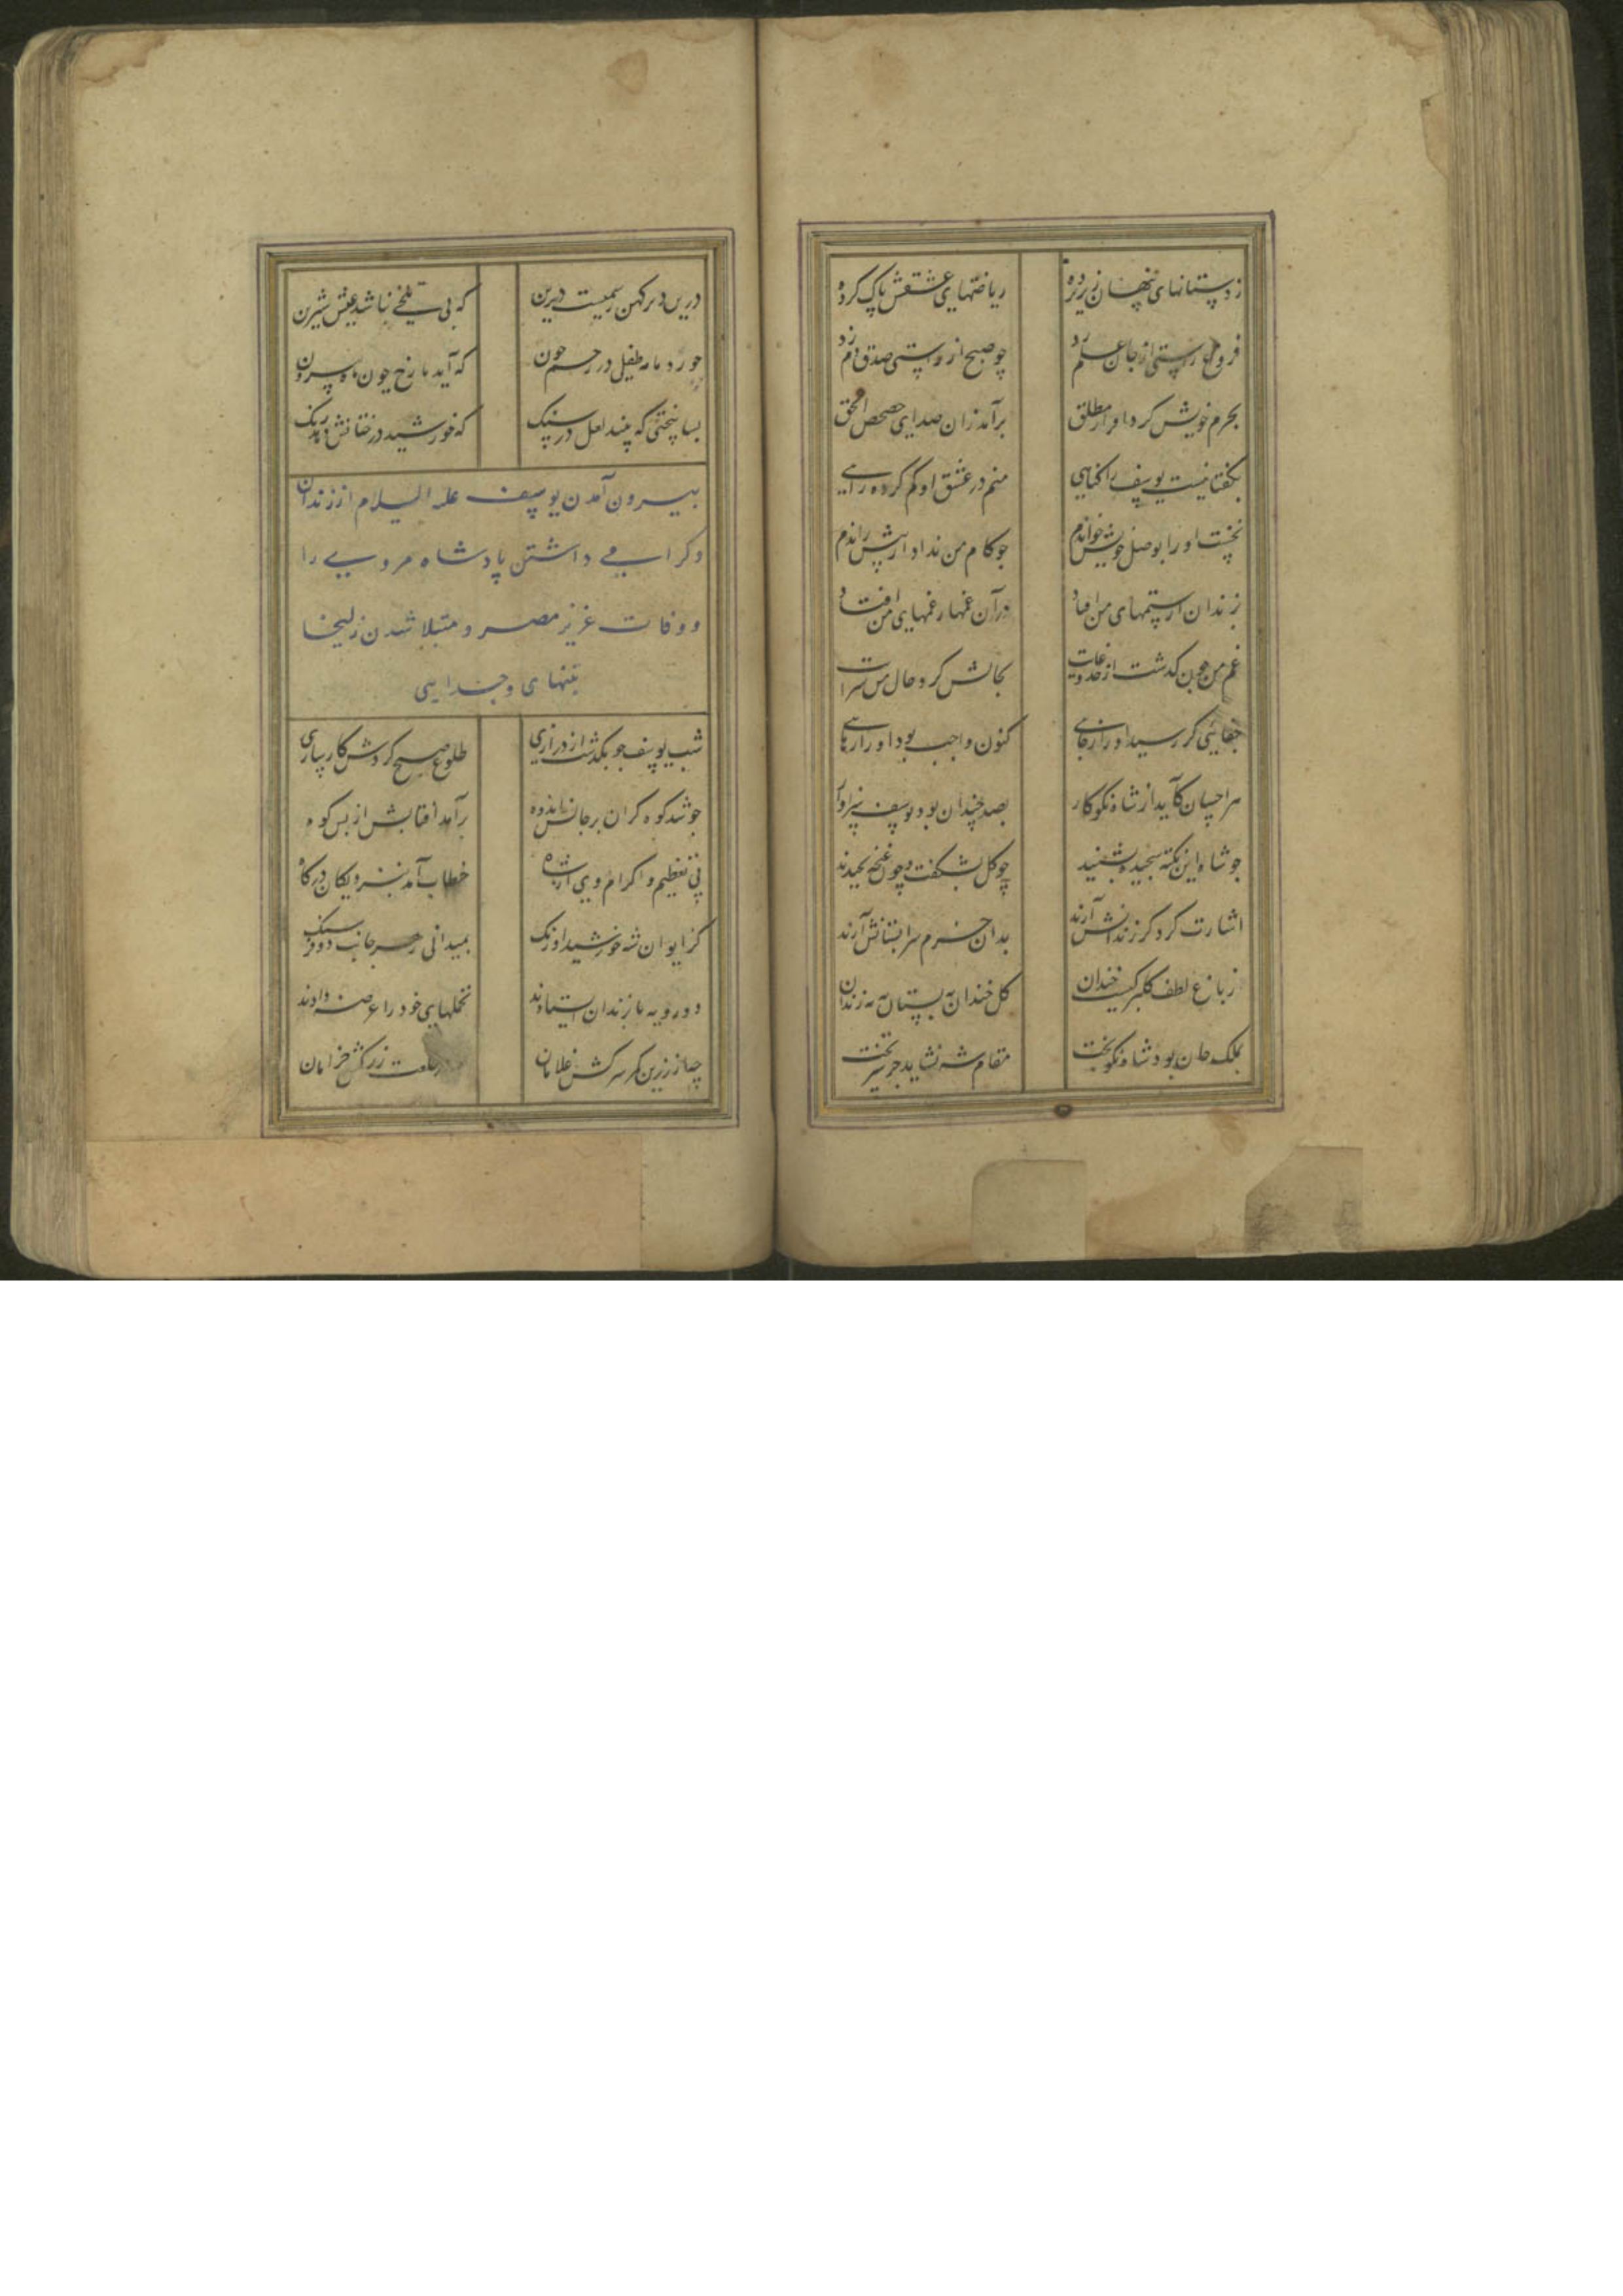 ز دستانهای پنهان زیر پرده
ریاضتهای عشقش پاک کرده
فروغ راستی از جان علم زد
چو صبح از راستی صدق دم زد
بجرم خویش کرد اقرار مطلق
برآمد زان صدای حصحص الحق
بکفتا نیست یوسف را کناهی
منم در عشق او کم کرده راهی
نخست او را بوصل خویش خواندم
جو کام من نداد از پیش راندم
بزندان از ستمهای من افتاد
در آن غمها ز غمهای من افتاد
غم من چون کذشت از حد و غایت
بجانش کرد حال من سرایت
جفائی کر رسید او را ز جافی
کنون واجب بود او را
هر احسان کآید از شاه نکوکار
بصد چندان بود یوسف سزاوار
جو شاه این نکته سنجیده بشنید
چو کل بشکفت و چون غنچه بخندید
اشارت کرد کز زندانش آرند
بدان خرم سرابستانش آرند
ز باغ لطف کلبرکیست خندان
کل خندان به بستان به نه زندان
بملک جان بود شاه نکوبخت
مقام شه نشاید جز سر تخت
درین دیر کهن رسمیست دیرین
که بی تلخی نباشد عیش شیرین
خورد نه ماه طفل در رحم خون
که آید با رخ چون ماه بیرون
بسا سختی که بیند لعل در سنک
که خورشید درخشانش دهد رنک
بیرون آمدن یوسف علیه السلام از زندان
وکرامی داشتن پادشاه مر ویرا
و وفات عزیز مصر و مبتلا شدن زلیخا
بتنهای و جدایی
شب یوسف جو بکذشت از درازی
طلوع صبح کردش کارسازی
جو شد کوه کران بر جانش اندوه
برآمد آفتابش از پس کوه
پی تعظیم و اکرام وی از شاه
خطاب آمد بنزدیکان درکاه
کز ایوان شه خورشید اورنک
بمیدانی ز هر جانب دو فرسنک
دو رویه تا بزندان ایستادند
تجملهای خود را عرضه دادند
چه از زرین کمر سرکش غلامان
خلعت زرکش خرامان